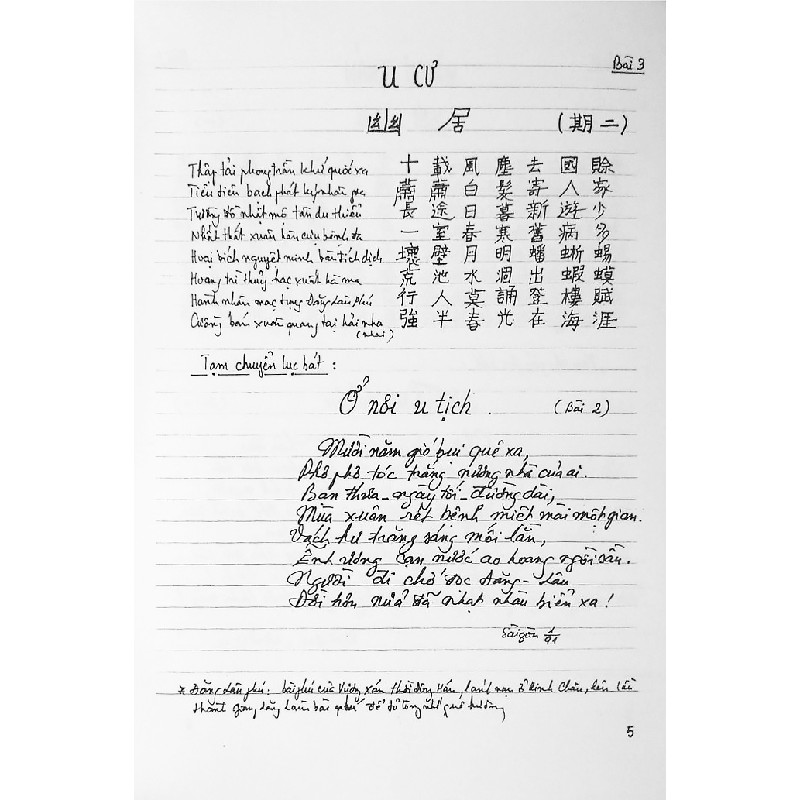 Bài 3
U CƯ
幽 居 (期二)
Thập tải phong trần khứ quốc xa 十載風塵去國賒
Tiêu tiêu bạch phát ký nhân gia 蕭蕭白髮寄人家
Trường đồ nhật mộ tân du thiểu 長途日暮新遊少
Nhất thất xuân hàn cựu bệnh đa 一室春寒舊病多
Hoại bích nguyệt minh bàn tích dịch 壞壁月明蟠蜥蜴
Hoang trì thủy hạc xuất hà ma 荒池水涸出蝦蟆
Hành nhân mạc tụng Đăng lâu phú 行人莫誦登樓賦
Cưỡng bán xuân quang tại hải nha 強半春光在海涯
(nhai)
Tạm chuyển lục bát :
Ở nơi u tịch (bài 2)
Mười năm gió bụi quê xa,
Phơ phơ tóc trắng nương nhà của ai.
Bạn thưa - ngày tối - đường dài,
Mùa xuân rét bệnh miết mài một gian.
Vách hư trăng sáng mối lằn,
Ễnh ương cạn nước ao hoang ngồi dần.
Người đi chớ đọc Đăng - lâu
Đôi hôn nửa đã nhạt nhàu biển xa !
Sàigòn
* Đăng lâu phú: bài phú của Vương Xán thời Đông Hán, lánh nạn ở Kinh Châu, lên lầu
thành giang lăng làm bài phú để tỏ lòng nhớ quê hương
5